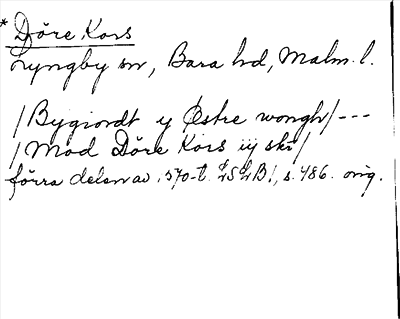 * Döre Kors
Lyngby sn, Bara hd, Malm. l.
/Bygiordt y Østre wongh/---
/Mod Döre Kors iij skr/
förra delen av 1570-t. LSLB1, s. 486. orig.